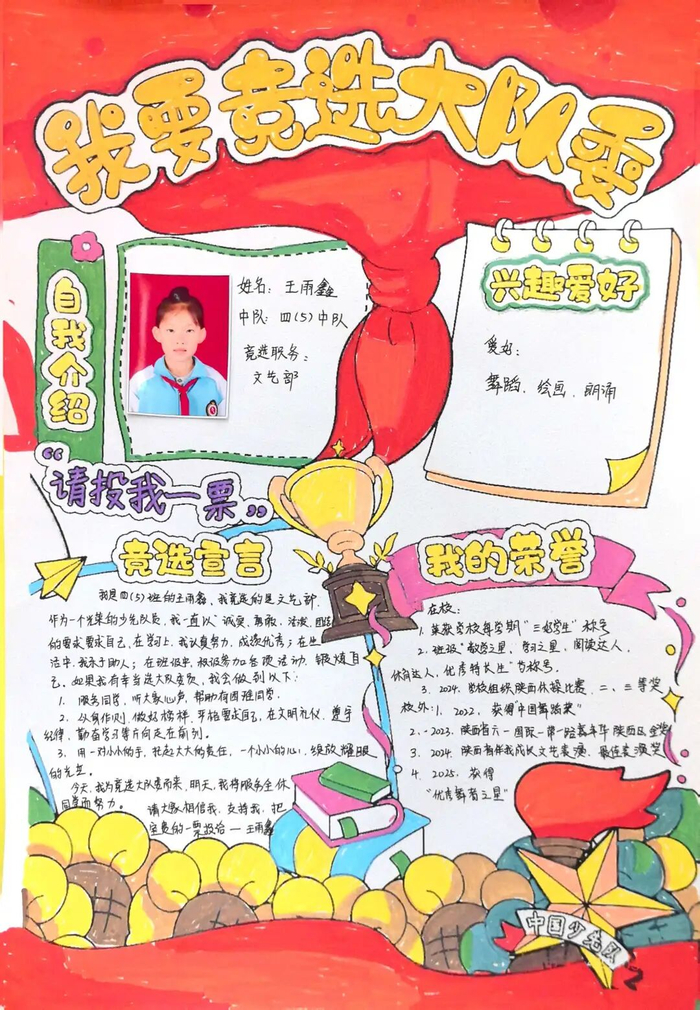 我要竞选大队委
自我介绍
姓名：王雨鑫
中队：四(5)中队
竞选职务：
文艺部
兴趣爱好
爱好：
舞蹈、绘画、朗诵
“请投我一票”
竞选宣言
我是四(5)班的王雨鑫，我竞选的是文艺部，
作为一个光荣的少先队员，我一直以“诚实、勇敢、活泼、团结
的要求要求自己，在学习上，我认真努力，成绩优秀；在生
活中，我乐于助人；在班级中，积极参加各项活动，锻炼自
己。如果我有幸当选大队委员，我会做到以下：
1. 服务同学，听大家心声，帮助有困难同学。
2. 以身作则，做好榜样，严格要求自己，在文明礼仪，遵守
纪律，勤奋学习等方向走在前列。
3. 用一对小小的手，托起大大的责任，一个小小的心，绽放耀眼
的光芒。
今天，我为竞选大队委而来，明天，我将服务全体
同学而努力。
请大家相信我，支持我，把
宝贵的一票投给 — 王雨鑫
我的荣誉
在校：
1. 荣获学校每学期“三好学生”称号
2. 班级“数学之星，学习之星，阅读达人，
体育达人，优秀特长生”等称号。
3. 2024. 学校组织陕西体操比赛 二、三等奖
校外：1. 2022. 获得中国舞蹈奖”
2. - 2023. 陕西省六一国际一带一路嘉年华 陕西区 金奖
3. 2024 陕西青年我成长文艺表演，最佳表演奖
4. 2025. 获得
“优秀舞者之星”
中国少先队